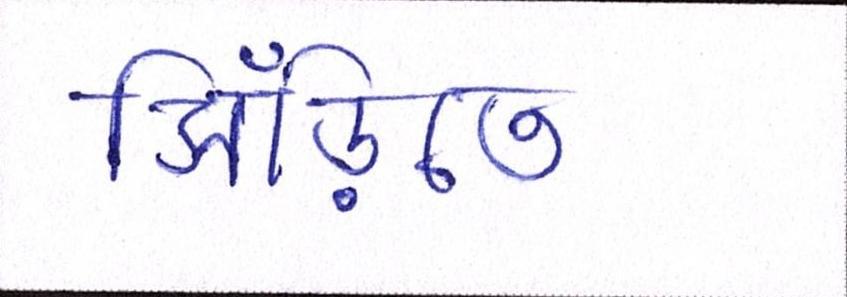 সিঁড়িতে